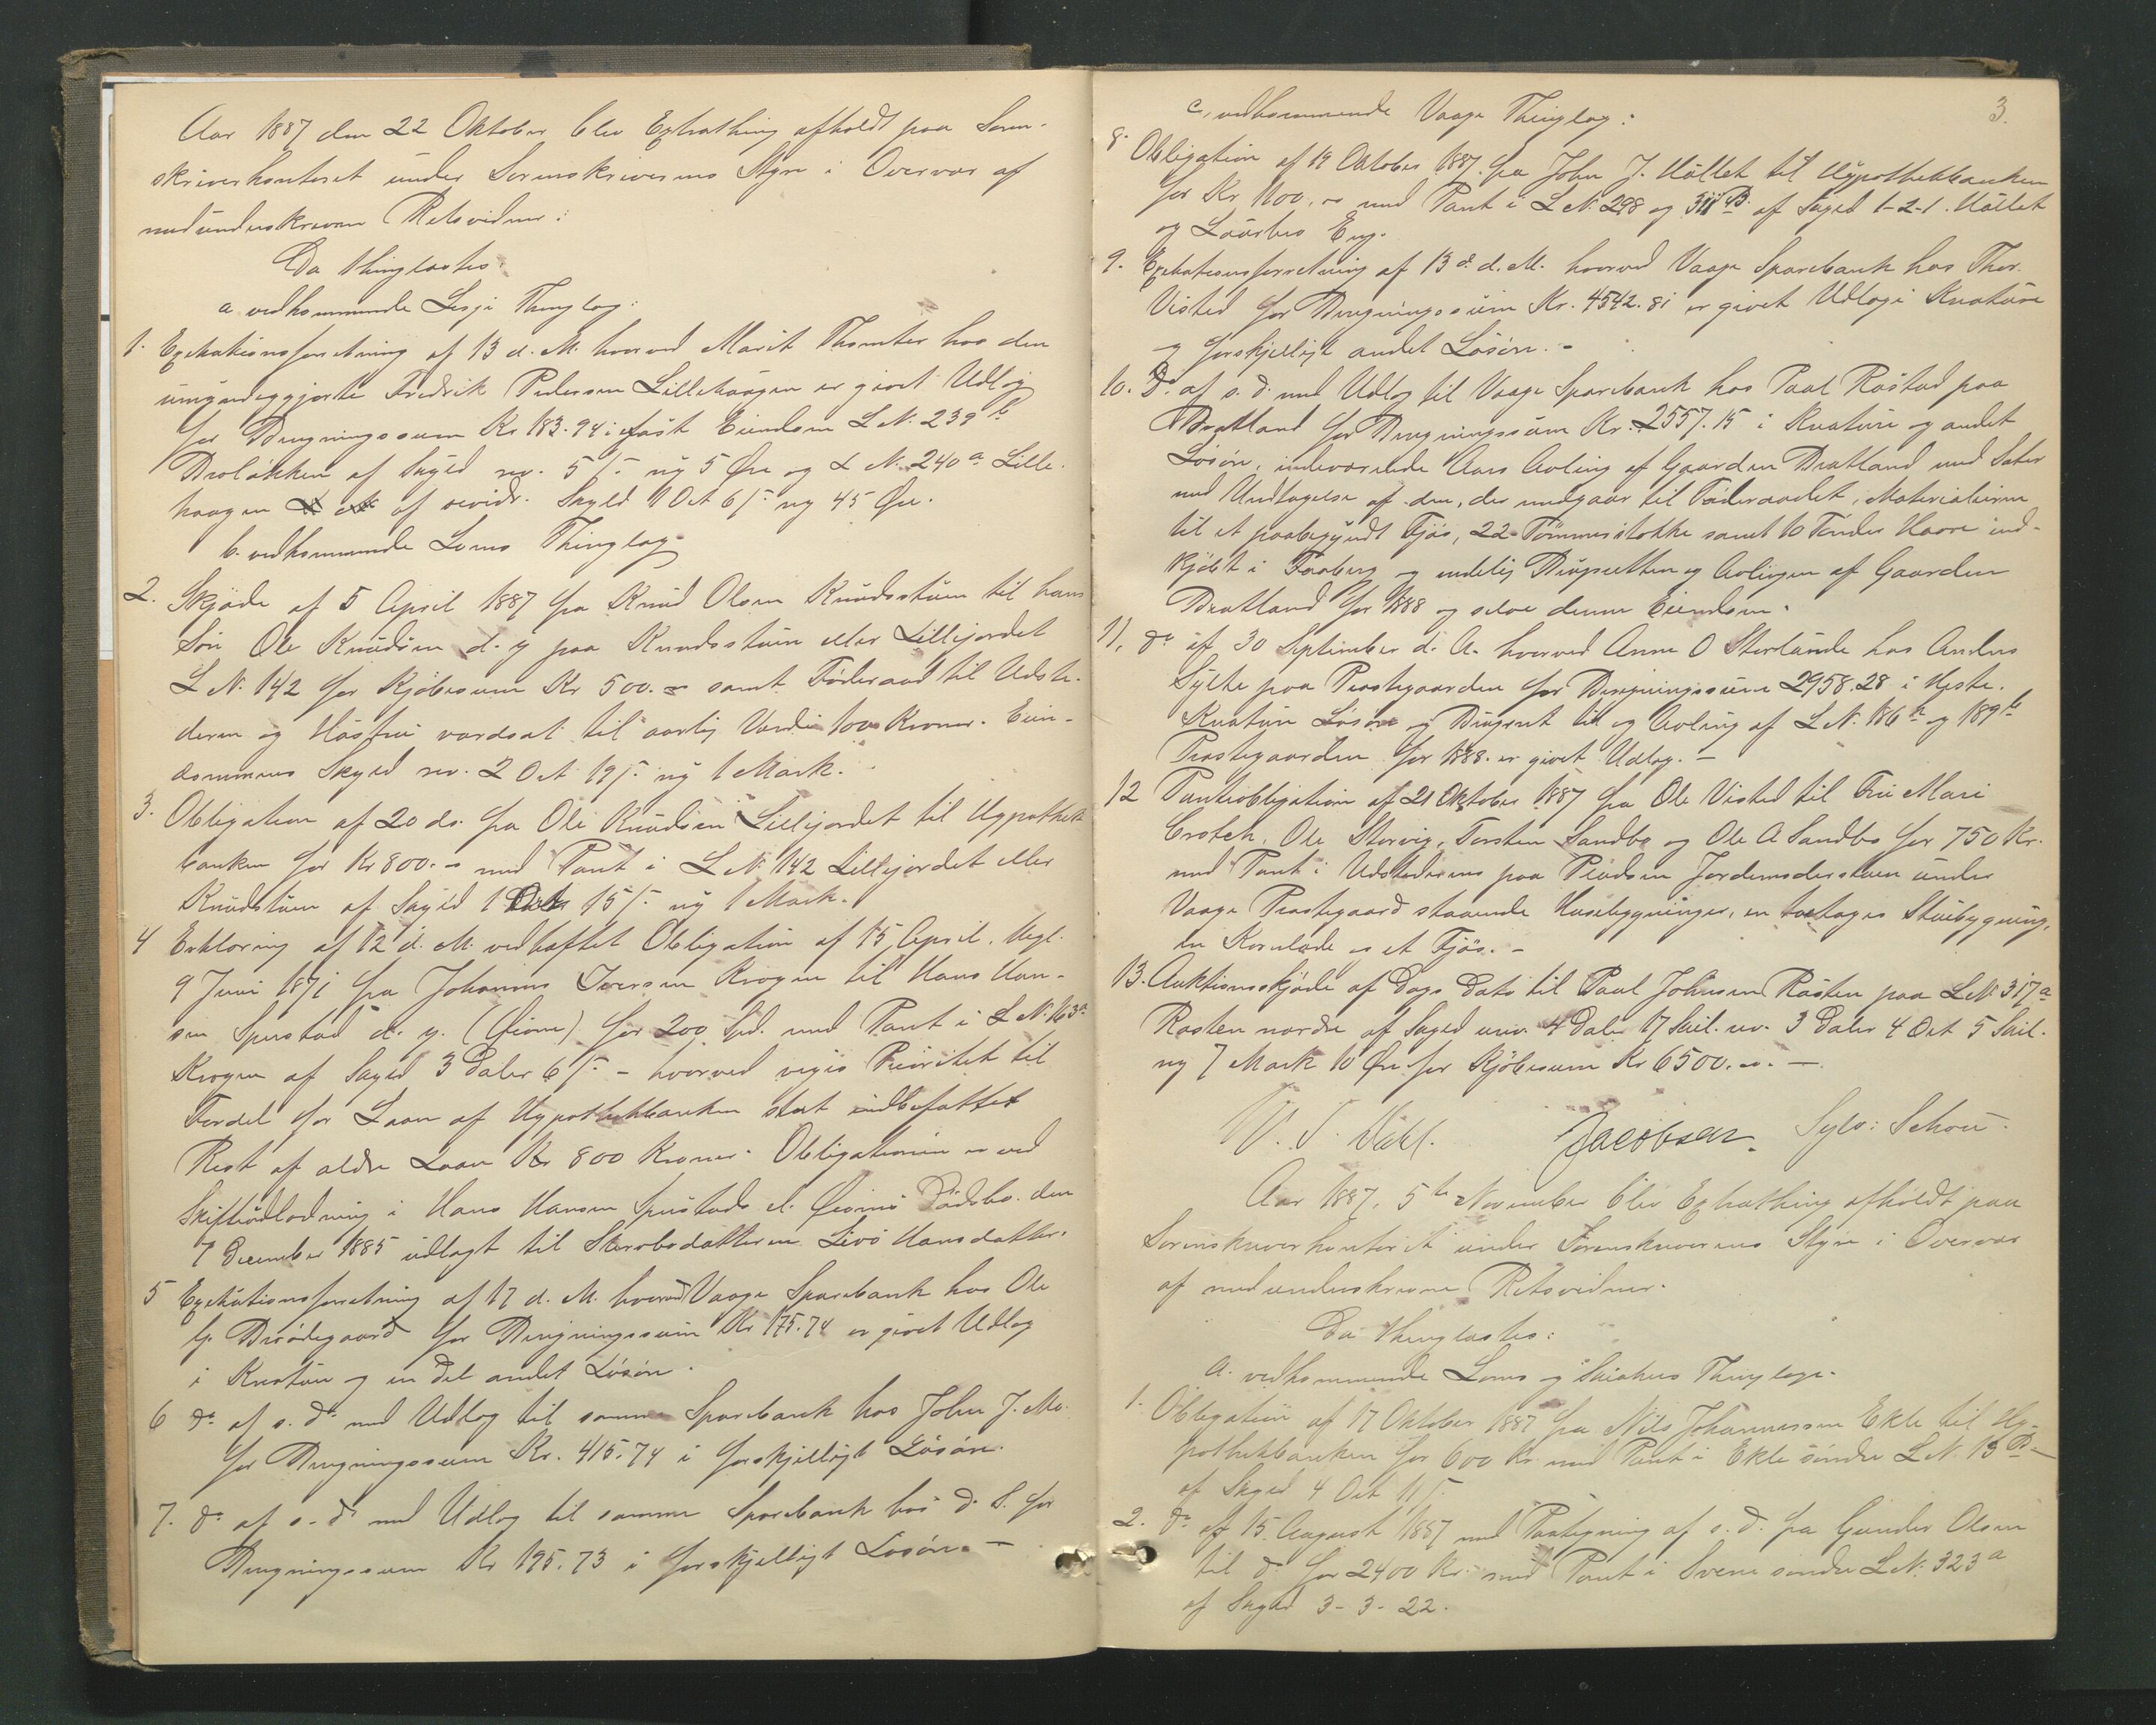 Aar 1887 den 22 Oktober blev Extrathing afholdt paa Soren-
skriverkontoret under Sorenskriverens Styre i Overvær af
nedunderskrevne Retsvidner:
Da thinglæstes:
a. vedkommende Lesje Thinglag:
1. Exekutionsforretning af 13 d. M. hvorved Marit Thomter hos den
umyndiggjorte Fredrik Pedersen Lillehaagen er givet Udlæg
for Dragningssum Kr 183.94 i fast Eiendom L N. 239 b
af Skyld rev. 5 ẞ ny 5 Øre og L N. 240 a Lille-
haagen af revidr. Skyld 1 Ort 6 ẞ ny 45 Øre.
b. vedkommende Loms Thinglag
2. Skjøde af 5 April 1887 fra Knud Olsen Knudsstuen til hans
Søn Ole Knudsen d. y paa Knudsstuen eller Lillejordet
L N. 142 for Kjøbesum Kr 500. samt Føderaad til Udste-
deren og Hustru værdsat til aarlig Værdi 100 Kroner. Eien-
dommens Skyld rev. 2 Ort 19 ẞ ny 1 Mark.
3. Obligation af 20 ds. fra Ole Knudsen Lillejordet til Hypothek-
banken for Kr 800. med Pant i L N. 142 Lillejordet eller
Knudstuen af Skyld 1 Ort 15 ẞ ny 1 Mark.
4 Erklæring af 12 d. M. vedhæftet Obligation af 15 April, thgl.
9 Juni 1871 fra Johannes Iversen Krogen til Hans Han-
sen d. y. for 200 Spd. med Pant i L N. 163 a
Krogen af Skyld 3 Daler 6 ẞ - hvorved viges Prioritet til
Fordel for Laan af Hypothekbanken stort indbefattet
Rest af ældre Laan Kr 800 Kroner. Obligationen er ved
Skifteudlodning i Hans Hansen Dødsbo den
7 December 1885 udlagt til Livø Hansdatter.
5 Exekutionsforretning af 17 d. M. hvorved Vaage Sparebank hos Ole
for Dragningssum Kr 175.74 er givet Udlæg
i Kreature og en Del andet Løsøre.
6 do af s. d. med Udlæg til samme Sparebank hos John J. Mo
for Dragningssum Kr. 415.74 i forskjelligt Løsøre.
7. do af s. d. med Udlæg til samme Sparebank hos d. S. for
Dragningssum Kr 195.73 i forskjelligt Løsøre. -
3.
c, vedkommende Vaage Thinglag:
8. Obligation af 19 Oktober 1887 fra John J. til Hypothekbanken
for Kr 1100. med Pant i L N. 298 og 311 B af Skyld 1-2-1.
og Eng.
9. Exekutionsforretning af 13 d. M. hvorved Vaage Sparebank hos Thor
Visted for Dragningssum Kr. 4542.81 er givet Udlæg i Kreature
og forskjelligt andet Løsøre. -
10. do af s. d. med Udlæg til Vaage Sparebank hos Paal Rastad paa
Bratland for Dragningssum Kr. 2557.15 i Kreature og andet
Løsøre, indeværende Aars Avling af Gaarden Bratland med Sæter
med Undtagelse af den, der medgaar til Føderaadet, Materialierne
til et paabegyndt Fjøs, 22 Tømmerstokke samt 10 Tønder Havre ind-
kjøbt i Faaberg og endelig Brugsretten og Avlingen af Gaarden
Bratland for 1888 og selve denne Eiendom.
11. do af 30 September d. A. hvorved Anne O Storlunde hos Anders
Sylte paa Prestegaarden for Dragningssum 2958.28 i Heste,
Kreature Løsøre og Brugsret til og Avling af L N. 186 b og 189 b
Prestegaarden for 1888 er givet Udlæg. -
12 Panteobligation af 21 Oktober 1887 fra Ole Visted til Fru Mari
Crotch, Ole Storvig, Torsten Sandbo og Ole A Sandbo for 750 Kr.
med Pant i Udstederens paa Pladsen Jordemoderstuen under
Vaage Prestegaard staaende Husebygninger, en toetages Stuebygning,
en Kornlade og et Fjøs. -
13. Auktionsskjøde af Dags Dato til Paul Johnsen Rasten paa L N. 317 a
Rasten nordre af Skyld urev. 4 Daler 17 Skil. rev. 3 Daler 4 Ort 5 Skil.
ny 7 Mark 10 Øre for Kjøbesum Kr 6500. -
Jacobsen. Sylv: Schou.
Aar 1887, 5te November blev Extrathing afholdt paa
Sorenskriverkontoret under Sorenskriverens Styre i Overvær
af nedunderskrevne Retsvidner.
Da thinglæstes:
a. vedkommende Loms og Skiakers Thinglage.
1. Obligation af 17 Oktober 1887 fra Nils Johannessen Ekle til Hy-
pothekbanken for 600 Kr. med Pant i Ekle søndre L N. 13 B
af Skyld 4 Ort 11 ẞ
2. do af 15 August 1887 med Paategning af s. d. fra Gunder Olsen
til do for 2400 Kr. med Pant i Svee søndre L N. 323 a
af Skyld 3-3-22.